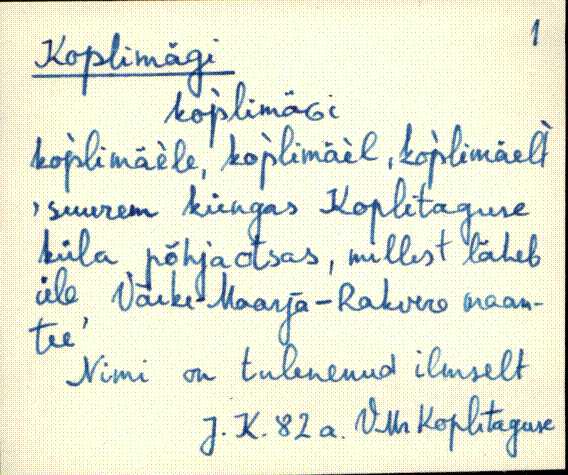 1
Koplimägi
kop̀limäGi
kop̀limäèle, kop̀limäèl, kop̀limäelt̀
'suurem küngas Koplitaguse
küla põhjaotsas, millest läheb
üle Väike-Maarja-Rakvere maan-
tee'
Nimi on tulenenud ilmselt
J. K. 82 a. VMr Koplitaguse